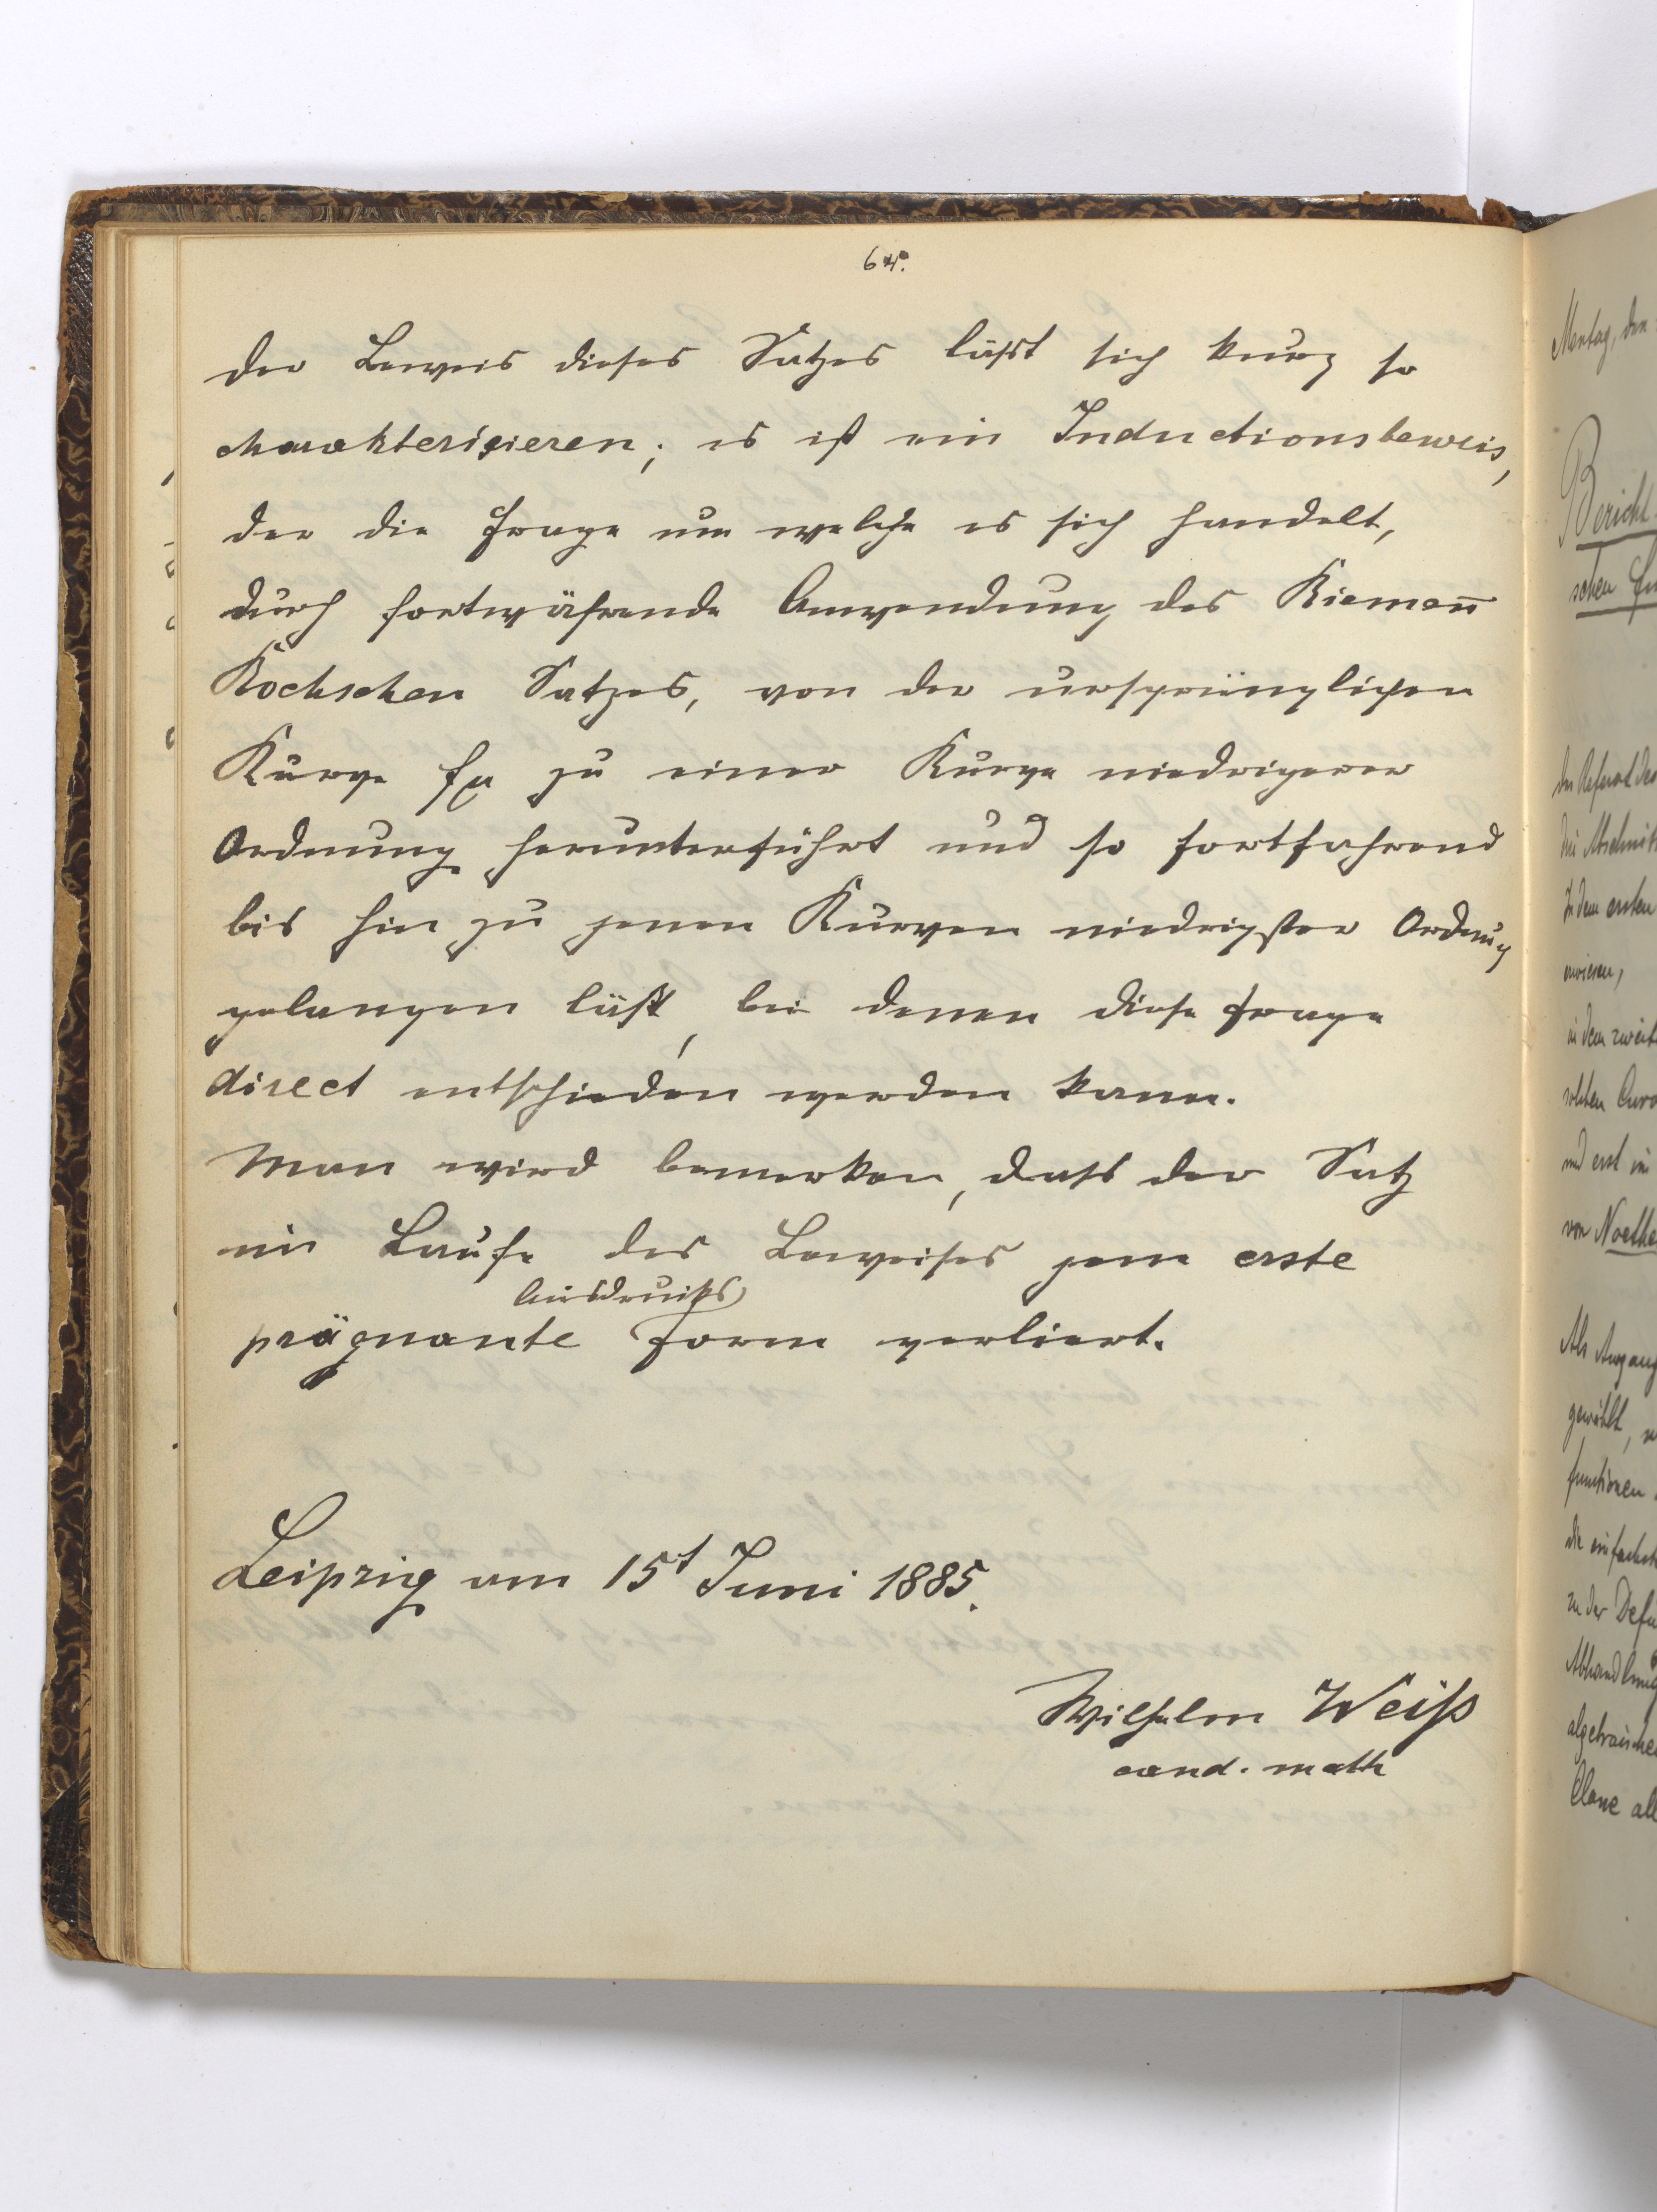 64.
Der Beweis dieses Satzes lässt sich kurz so
charakterisieren; es ist ein Inductionsbeweis,
der die Frage um welche es sich handelt,
durch fortwährende Anwendung des Riemañ
Rochschen Satzes, von der ursprünglichen
Kurve fμ zu einer Kurve niedrigerer
Ordnung herunterführt und so fortfahrend
bis hin zu jenen Kurven niedrigster Ordnung
gelangen läßt, bei denen diese Frage
direct entschieden werden kann.
Man wird bemerken, dass der Satz
im Laufe des Beweises jene erste
Ausdrucks
prägnante Form verliert.
Leipzig am 15t Juni 1885.
Wilhelm Weiß
cand. math
Montag, den
Bericht
schen
Das Referat des
drei Abschnitt
In dem ersten
in dem zweit
solchen Curv
und erst im
von Noethe
Als Ausgang
gewählt,
functionen
die einfachst
zu der Defin
Abhandlung
algebraische